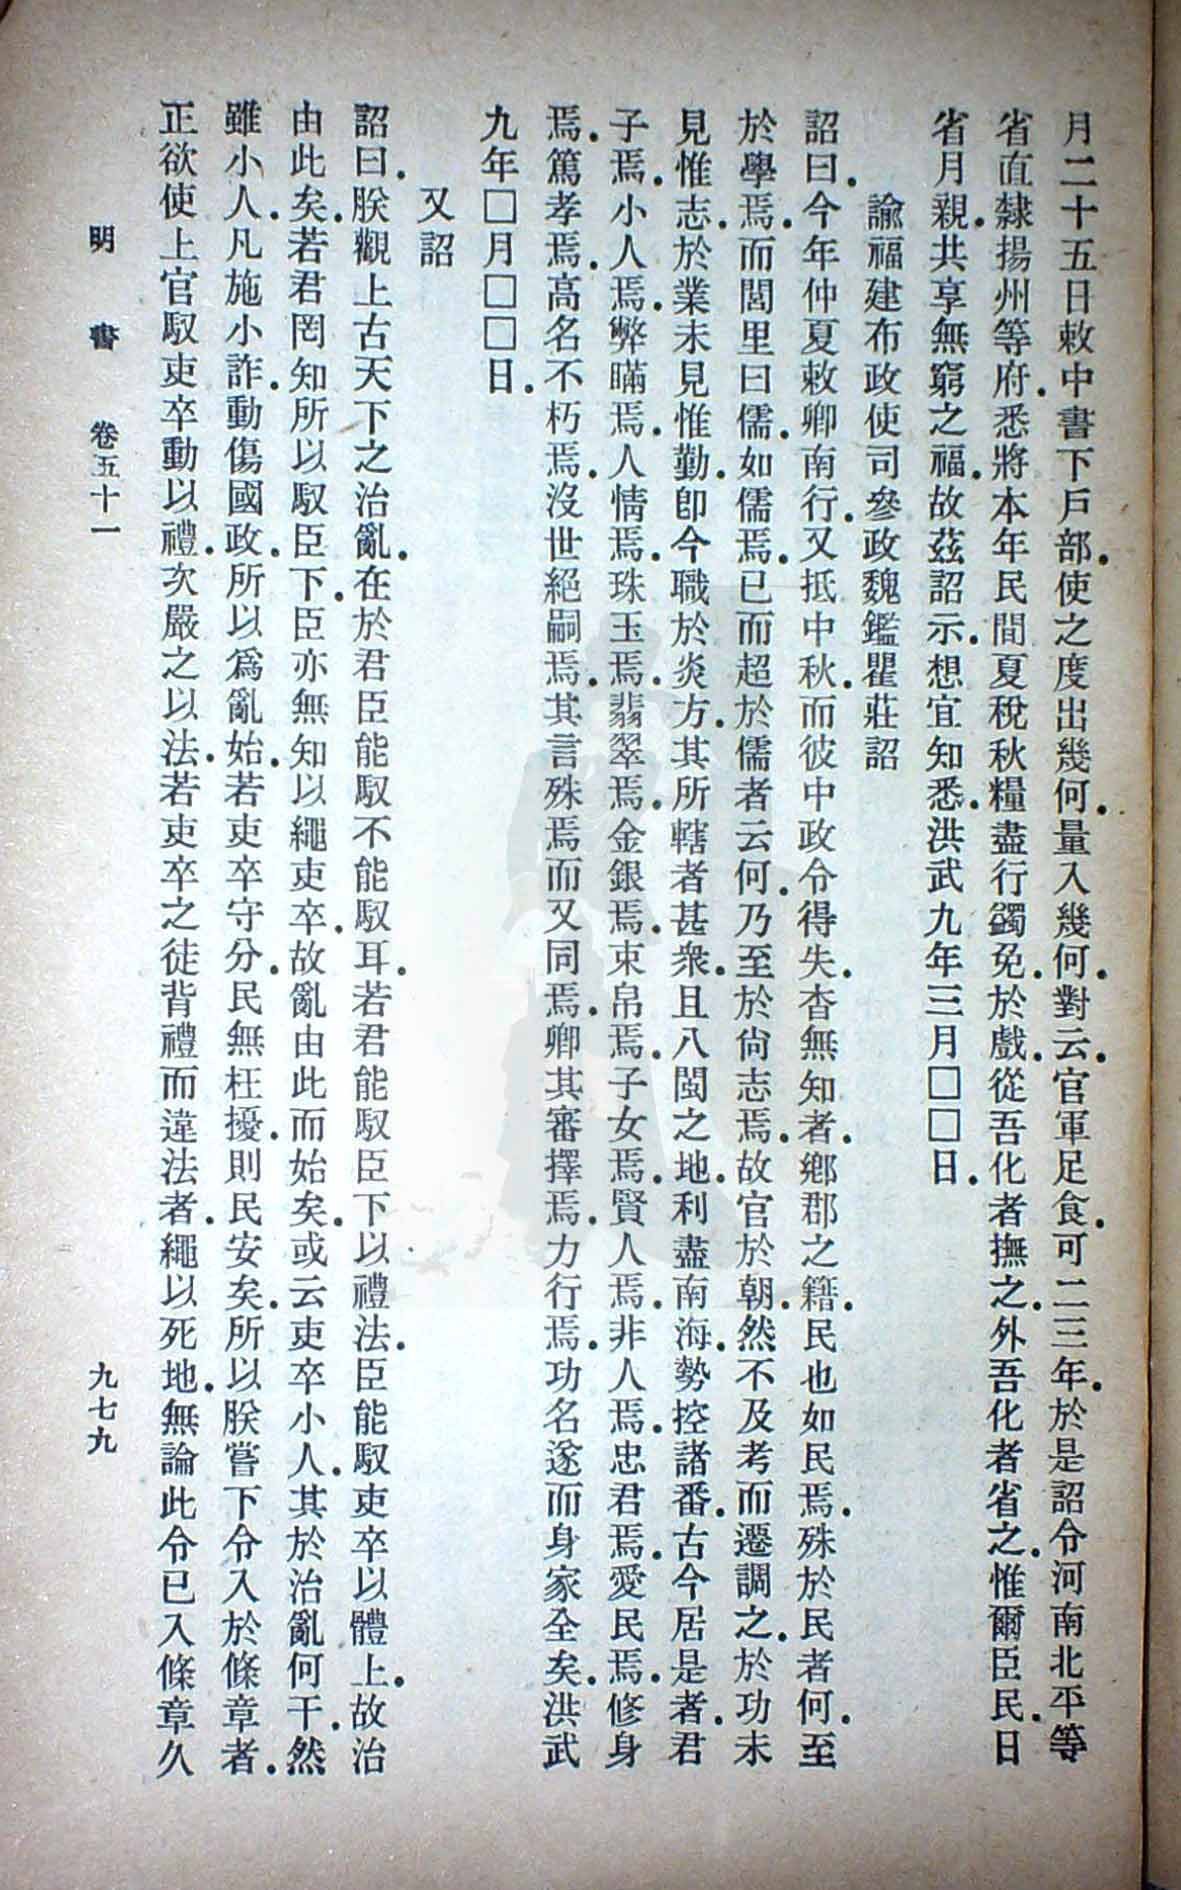 月二十五日敕中書下戶部．使之度出幾何．量入幾何．對云．官軍足食．可二三年．於是詔令河南北平等
省直隸揚州等府．悉將本年民間夏稅秋糧盡行蠲免．於戲．從吾化者撫之．外吾化者省之．惟爾臣民．日
省月親．共享無窮之福．故茲詔示．想宜知悉．洪武九年三月□□日．
諭福建布政使司參政魏鑑瞿莊詔
詔曰．今年仲夏敕卿南行．又抵中秋．而彼中政令得失．杳無知者．鄉郡之籍．民也如民焉．殊於民者何．至
於學焉．而閭里曰儒．如儒焉．已而超於儒者云何．乃至於尙志焉．故官於朝．然不及考而遷調之．於功未
見惟志．於業未見惟勤．卽今職於炎方．其所轄者甚衆．且八閩之地．利盡南海．勢控諸番．古今居是者．君
子焉．小人焉．弊瞞焉．人情焉．珠玉焉．翡翠焉．金銀焉．束帛焉．子女焉．賢人焉．非人焉．忠君焉．愛民焉．修身
焉．篤孝焉．高名不朽焉．沒世絕嗣焉．其言殊焉而又同焉．卿其審擇焉．力行焉．功名遂而身家全矣．洪武
九年□月□□日．
又詔
詔曰．朕觀上古天下之治亂．在於君臣能馭不能馭耳．若君能馭臣下以禮法．臣能馭吏卒以體上．故治
由此矣．若君罔知所以馭臣下．臣亦無知以繩吏卒．故亂由此而始矣．或云吏卒小人．其於治亂何干．然
雖小人．凡施小詐．動傷國政．所以爲亂始．若吏卒守分．民無枉擾．則民安矣．所以朕嘗下令入於條章者．
正欲使上官馭吏卒動以禮．次嚴之以法．若吏卒之徒背禮而違法者．繩以死地．無論此令已入條章久
明 書 卷五十一 九七九